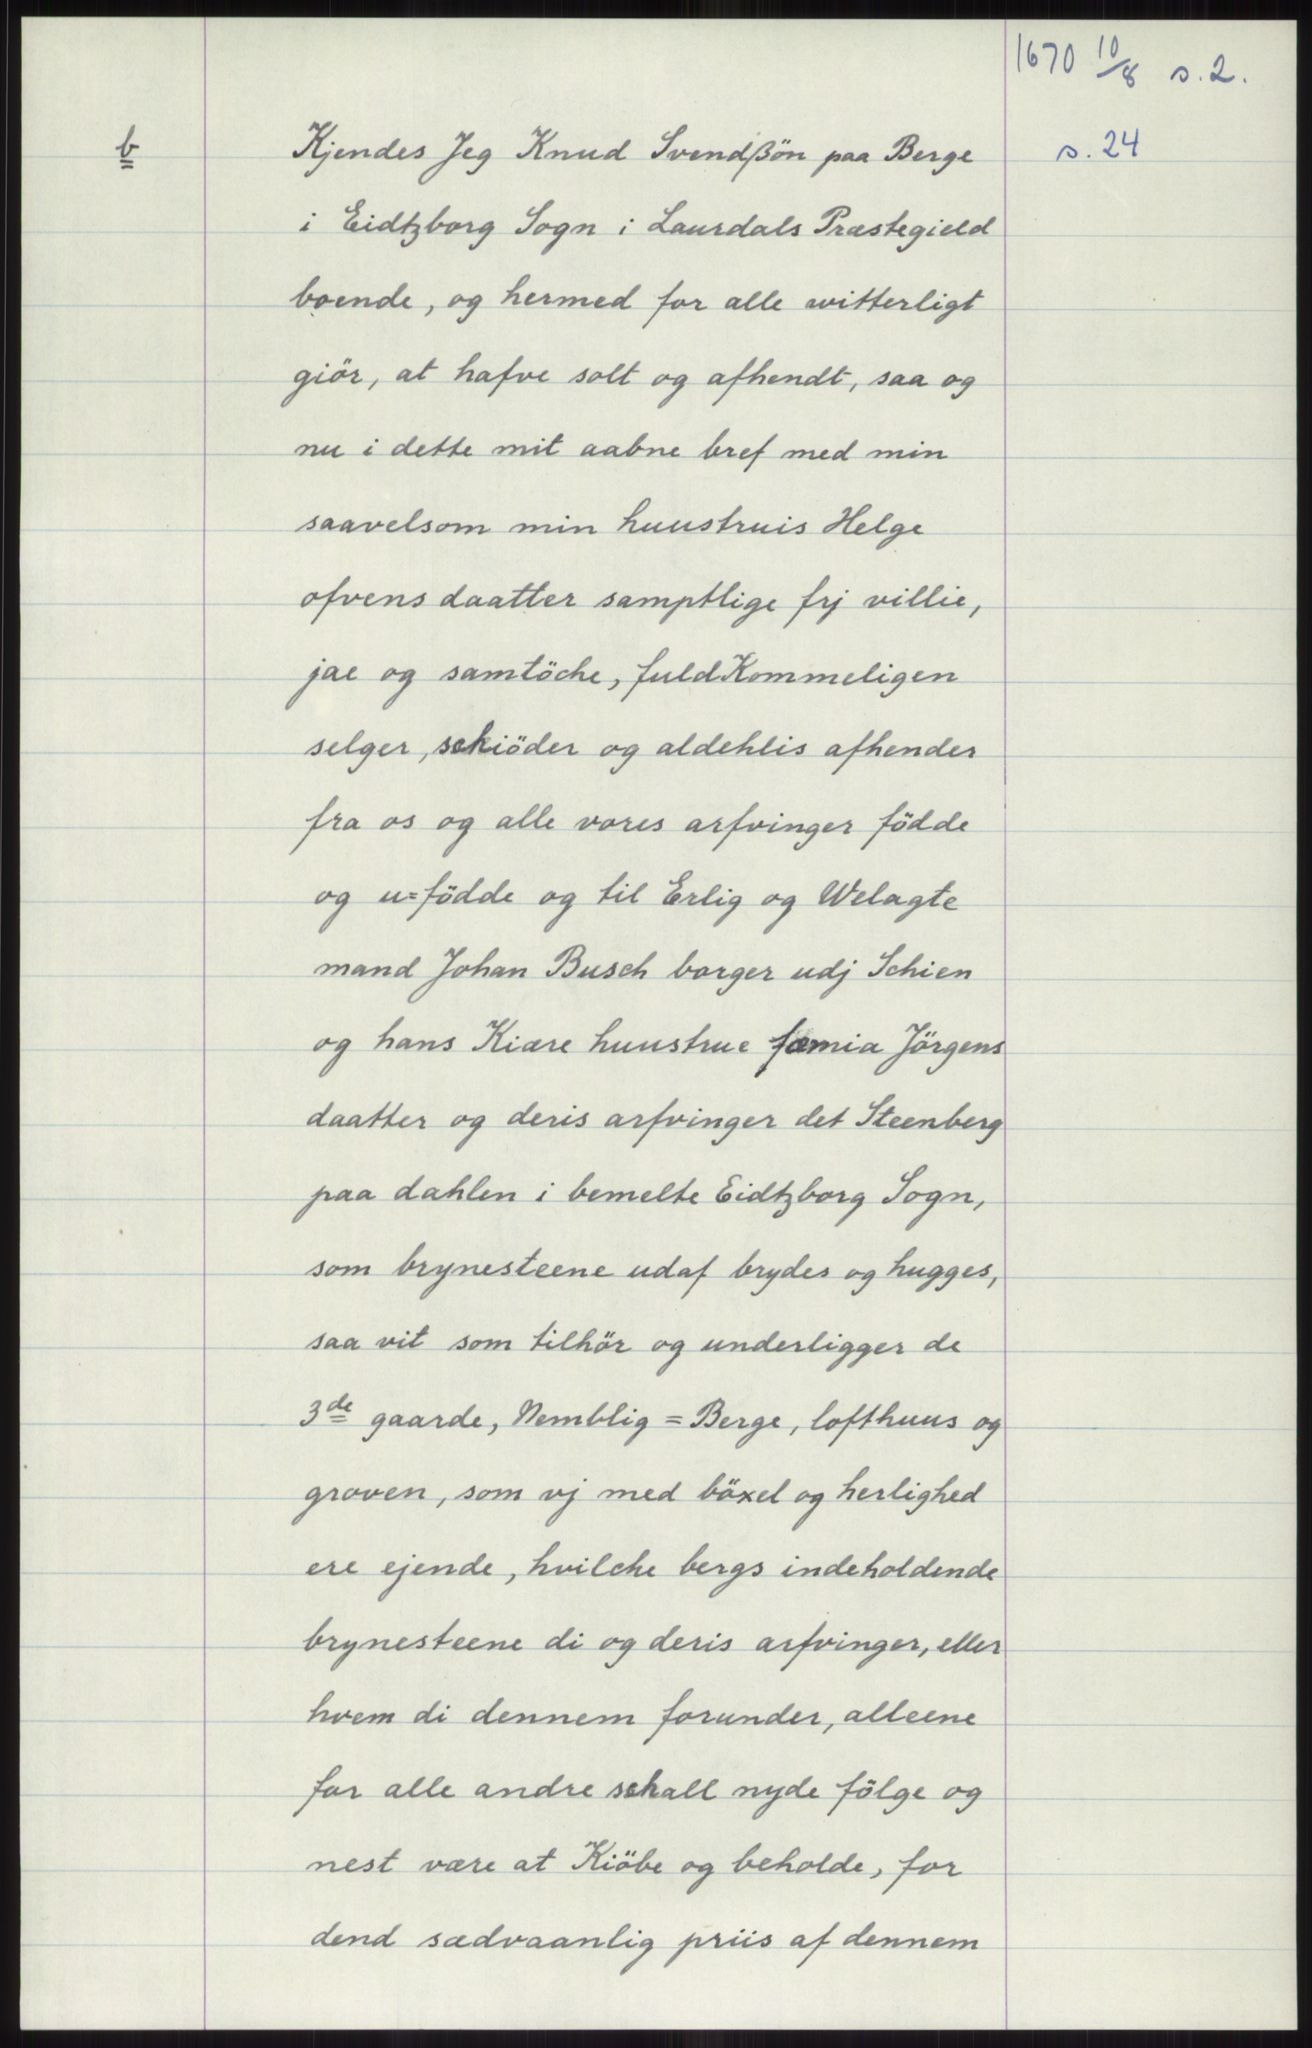 1670 10/8 s. 2.
b
s. 24
Kjendes Jeg Knud Svendßön paa Berge
i Eidtzborg Sogn i Laurdals Præstegield
boende, og hermed for alle witterligt
giör, at hafve solt og afhendt, saa og
nu i dette mit aabne bref med min
saavelsom min huustruis Helge
ofvens daatter samptlige frj villie,
jae og samtöche, fuldKommeligen
selger, schiöder og aldehlis afhender
fra os og alle vores arfvinger födde
og u=födde og til Erlig og Welagte
mand Johan Busch borger udj Schien
og hans Kiære huustrue fæmia Jörgens
daatter og deris arfvinger det Steenberg
paa dahlen i bemelte Eidtzborg Sogn,
som brynesteene udaf brydes og hugges,
saa vit som tilhör og underligger de
3de gaarde, Nemblig = Berge, lofthuus og
groven, som vj med böxel og herlighed
ere ejende, hvilche bergs indeholdende
brynesteene di og deris arfvinger, eller
hvem di dennem forunder, alleene
for alle andre schall nyde fölge og
nest være at Kiöbe og beholde, for
dend sædvaanlig priis af dennem